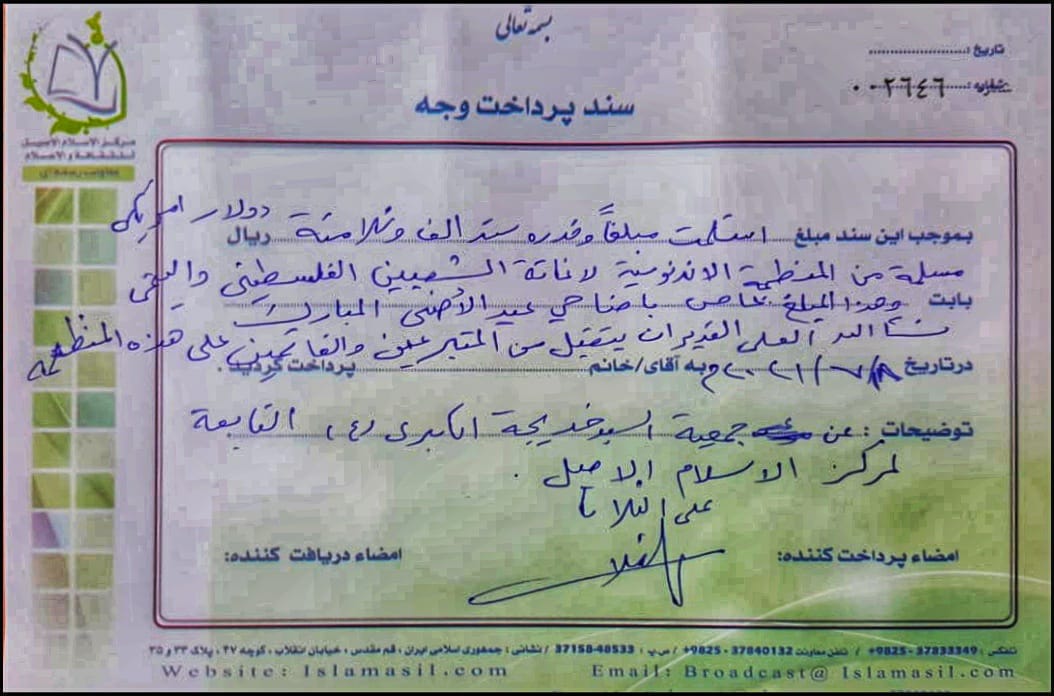 بسمه تعالی
تاریخ :
شماره : ٠٠٢٦٤٦
سند پرداخت وجه
مرکز الاسلام الاصیل
للثقافة و الاعلام
معاونت رسانه ای
بموجب این سند مبلغ استلمت مبلغاً وقدره ستة الف وثلاثمئة ریال دولار امریکی
مسلمة من المنظمة الاندنوسية لاغاثة الشعبيين الفلسطيني واليمني
بابت وهذا المبلغ خاص باضاحي عيد الأضحى المبارك
الله العلي القدير ان يتقبل من المتبرعين والقائمين على هذه المنظمة
درتاریخ ٢٠٢١/٧/٨م به آقای/خانم پرداخت گردید .
توضیحات : عن جمعية السيدة خديجة الكبرى (ع) التابعة
لمركز الاسلام الاصيل .
علي الفلاح
امضاء پرداخت کننده:
امضاء دریافت کننده:
تلفکس : 37833349 - 9825+ / تلفن معاونت 37840132 - 9825+ / ص.پ : 48533-37158 / نشانی : جمهوری اسلامی ایران ، قم مقدس ، خیابان انقلاب ، کوچه ۴۷ ، پلاک ۳۳ و ۳۵
Website: Islamasil.com Email: Broadcast@ Islamasil.com